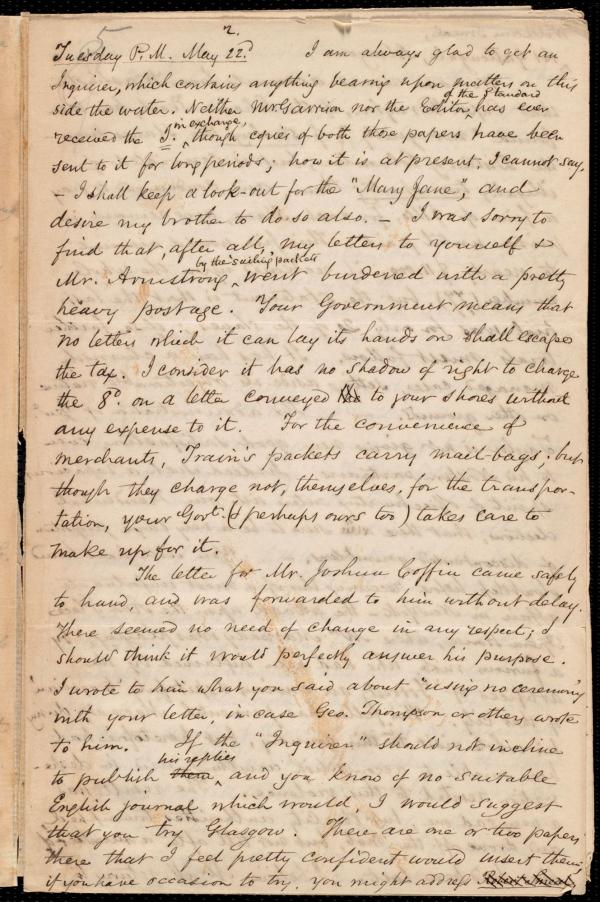 5
2.
Tuesday P. M. May 22d. I am always glad to get an
Inquirer, which contains anything bearing upon matters on this
side the water. Neither Mr. Garrison nor the Editor of the Standard has ever
received the I. in exchange, though copies of both those papers have been
sent to it for long periods; how it is at present, I cannot say.
– I shall keep a look-out for the "Mary Jane", and
desire my brother to do so also. – I was sorry to
find that, after all, my letters to yourself &
Mr. Armstrong by the sailing packets went burdened with a pretty
heavy postage. Your Government means that
no letters which it can lay its hands on shall escape
the tax. I consider it has no shadow of right to charge
the 8d. on a letter conveyed to your shores without
any expense to it. For the convenience of
merchants, Train's packets carry mail-bags; but
though they charge not, themselves, for the transpor-
tation, your Govt. (& perhaps ours too) takes care to
make up for it.
The letter for Mr. Joshua Coffin came safely
to hand, and was forwarded to him without delay.
There seemed no need of change in any respect; I
should think it would perfectly answer his purpose.
I wrote to him what you said about "using no ceremony"
with your letter, in case Geo. Thompson or others wrote
to him. If the "Inquirer" should not incline
to publish them his replies, and you know of no suitable
English journal which would, I would suggest
that you try Glasgow. There are one or two papers
there that I feel pretty confident would insert them;
if you have occasion to try, you might address Robert Smeal,